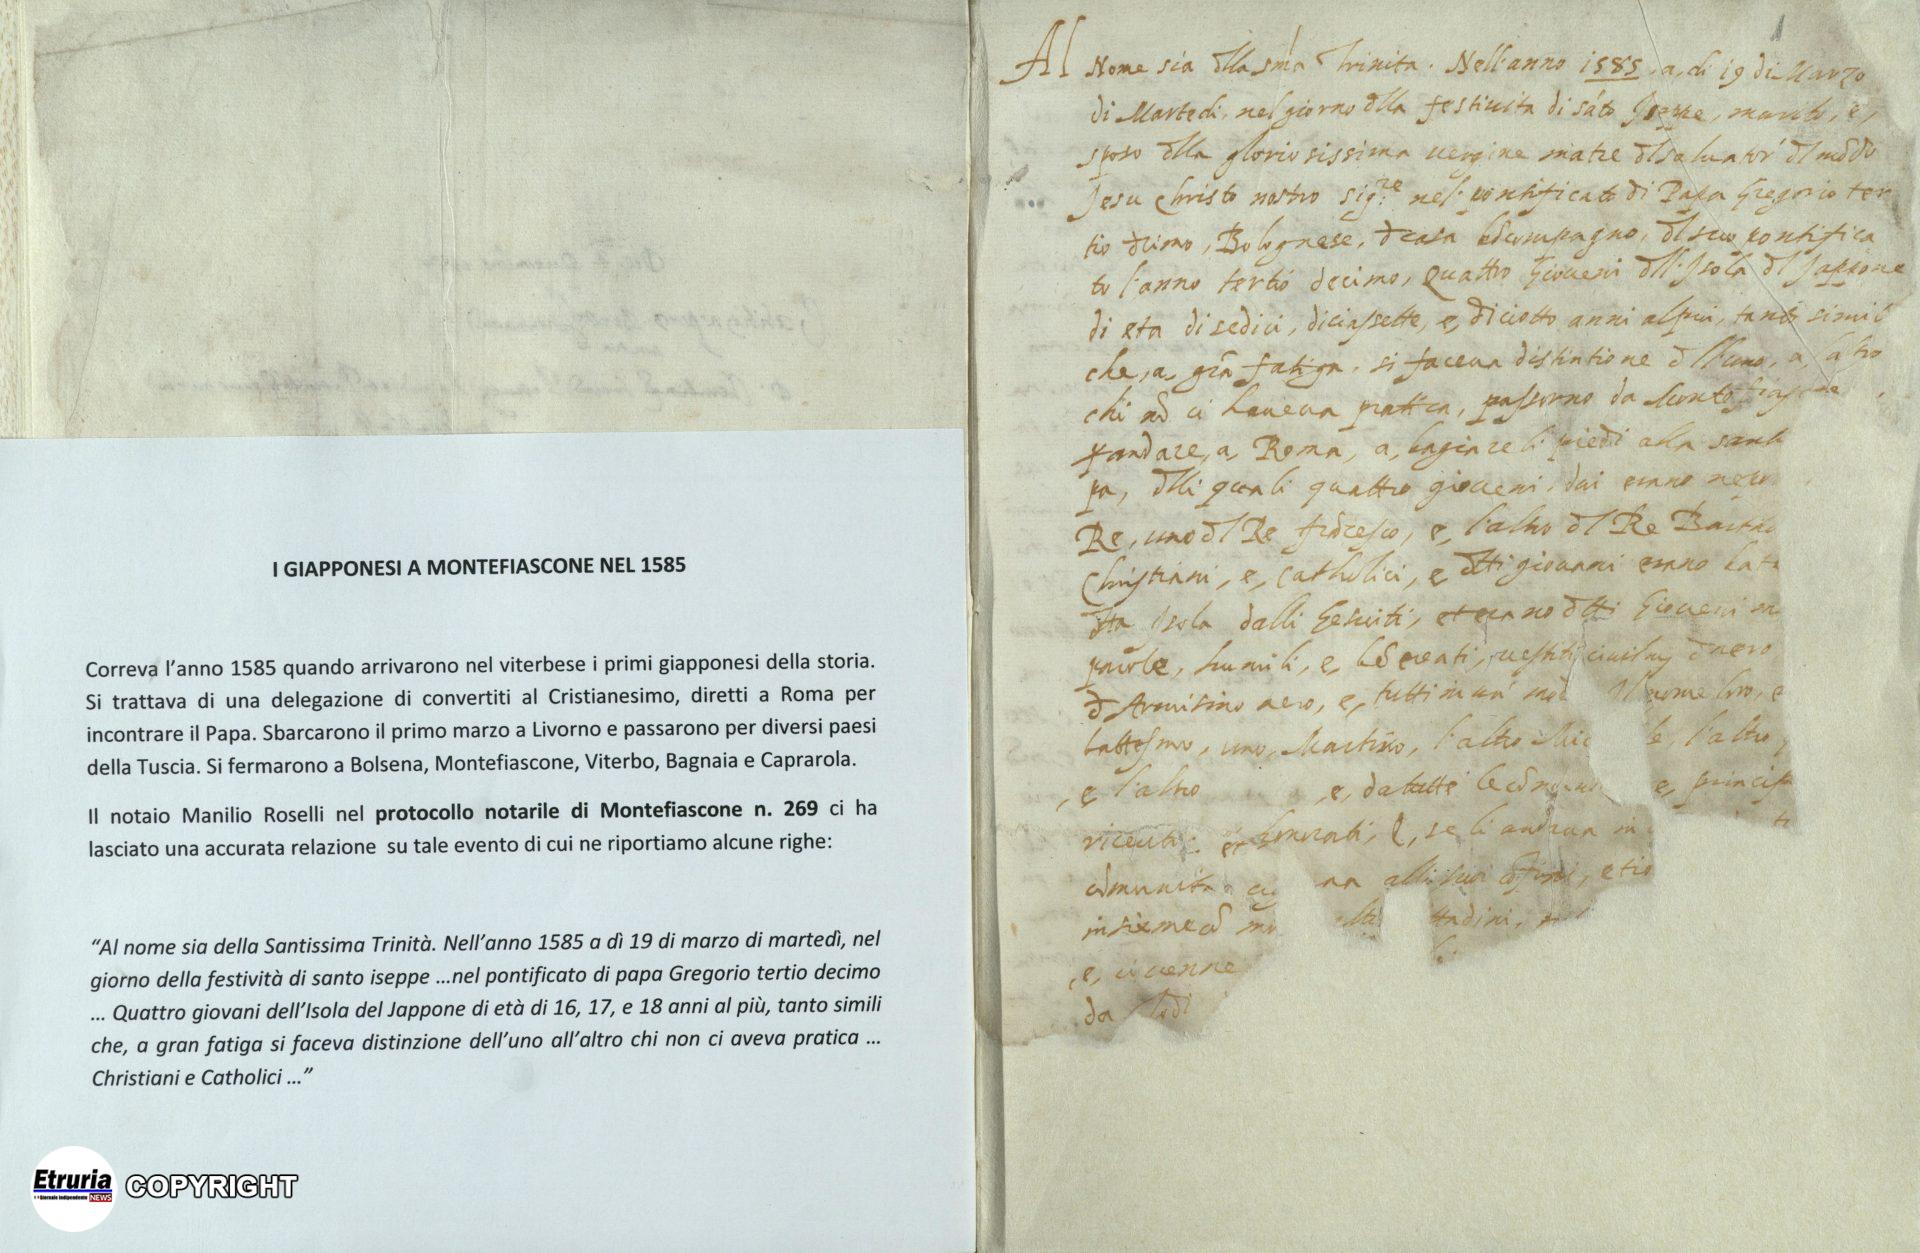 I GIAPPONESI A MONTEFIASCONE NEL 1585
Correva l'anno 1585 quando arrivarono nel viterbese i primi giapponesi della storia.
Si trattava di una delegazione di convertiti al Cristianesimo, diretti a Roma per
incontrare il Papa. Sbarcarono il primo marzo a Livorno e passarono per diversi paesi
della Tuscia. Si fermarono a Bolsena, Montefiascone, Viterbo, Bagnaia e Caprarola.
Il notaio Manilio Roselli nel protocollo notarile di Montefiascone n. 269 ci ha
lasciato una accurata relazione su tale evento di cui ne riportiamo alcune righe:
“Al nome sia della Santissima Trinità. Nell'anno 1585 a dì 19 di marzo di martedì, nel
giorno della festività di santo iseppe ...nel pontificato di papa Gregorio tertio decimo
... Quattro giovani dell'Isola del Jappone di età di 16, 17, e 18 anni al più, tanto simili
che, a gran fatiga si faceva distinzione dell'uno all'altro chi non ci aveva pratica ...
Christiani e Catholici ...”
Etruria
Il Giornale Indipendente NEWS
COPYRIGHT
Al Nome sia dlla sma Trinita. Nell'anno 1585, a, di 19 di Marzo
di Martedi, nel giorno dlla festiuita di sato Joseppe, marito, e,
sposo dlla gloriosissima uergine matre dl saluator' dl mōdo
Jesu Christo nostro sig.re nel pontificato di Papa Gregorio ter
tio dcimo, Bolognese, d casa bōcompagno, dl suo pontifica
to l'anno tertio decimo, Quattro Gioueni dll'Isola dl Jappone
di eta di sedici, diciassette, e, diciotto anni al piu, tanto simil
che, a, grā fatiga, si faceua distintione dll'uno, a, l'altro
chi nō ci haueua prattica, passorno da Montefiascone
andare, a, Roma, a, bagiare li piedi alla sant
pa, dlli quali quattro gioueni, dui erano nepo
Re, uno dl Re frācesco, e, l'altro dl Re Barto
Christiani, e, Catholici, e dtti giouani erano bat
dtta Isola dalli Gesuiti, et erano dtti Gioueni
parole, humili, e, uestiti d nero
d nero, e, tutti in un' mod Il nome loro, e
battesmo, uno, Martino, l'altro Mic le, l'altro
, e l'altro , e, da tutte le e, princip
riceuti et honorati, e, se li andaua in
cōmunita alli suoi cōfini, e
insieme cō ttadini,
, e, ci uenne
da